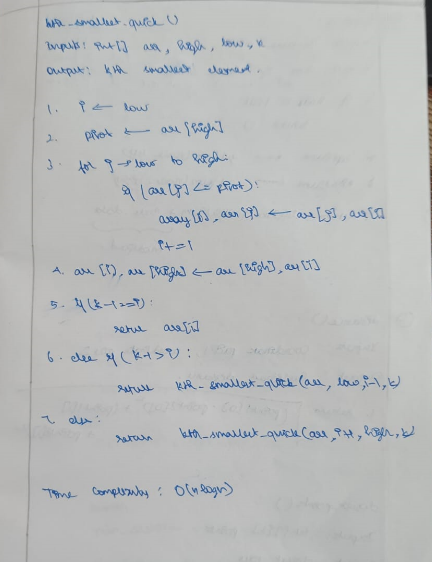 kth_smallest_quick ()
Input: int[] arr, high, low, k
Output: kth smallest element.
1. i ← low
2. pivot ← arr[high]
3. for j → low to high:
if (arr[j] <= pivot):
array[i], arr[j] ← arr[j], arr[i]
i+=1
4. arr[i], arr[high] ← arr[high], arr[i]
5. if (k-1==i):
return arr[i]
6. else if (k-1>i):
return kth_smallest_quick(arr, low, i-1, k)
7. else:
return kth_smallest_quick(arr, i+1, high, k)
Time complexity: O(nlogn)